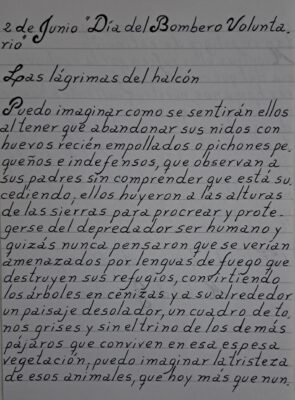 2 de Junio "Día del Bombero Volunta.
rio"
Las lágrimas del halcón
Puedo imaginar como se sentirán ellos
al tener que abandonar sus nidos con
huevos recién empollados o pichones pe.
queños e indefensos, que observan a
sus padres sin comprender que está su.
cediendo, ellos huyeron a las alturas
de las sierras para procrear y prote.
gerse del depredador ser humano y
quizás nunca pensaron que se verían
amenazados por lenguas de fuego que
destruyen sus refugios, convirtiendo
los árboles en cenizas y a su alrededor
un paisaje desolador, un cuadro de to.
nos grises y sin el trino de los demás
pájaros que conviven en esa espesa
vegetación, puedo imaginar la tristeza
de esos animales, que hoy más que nun.